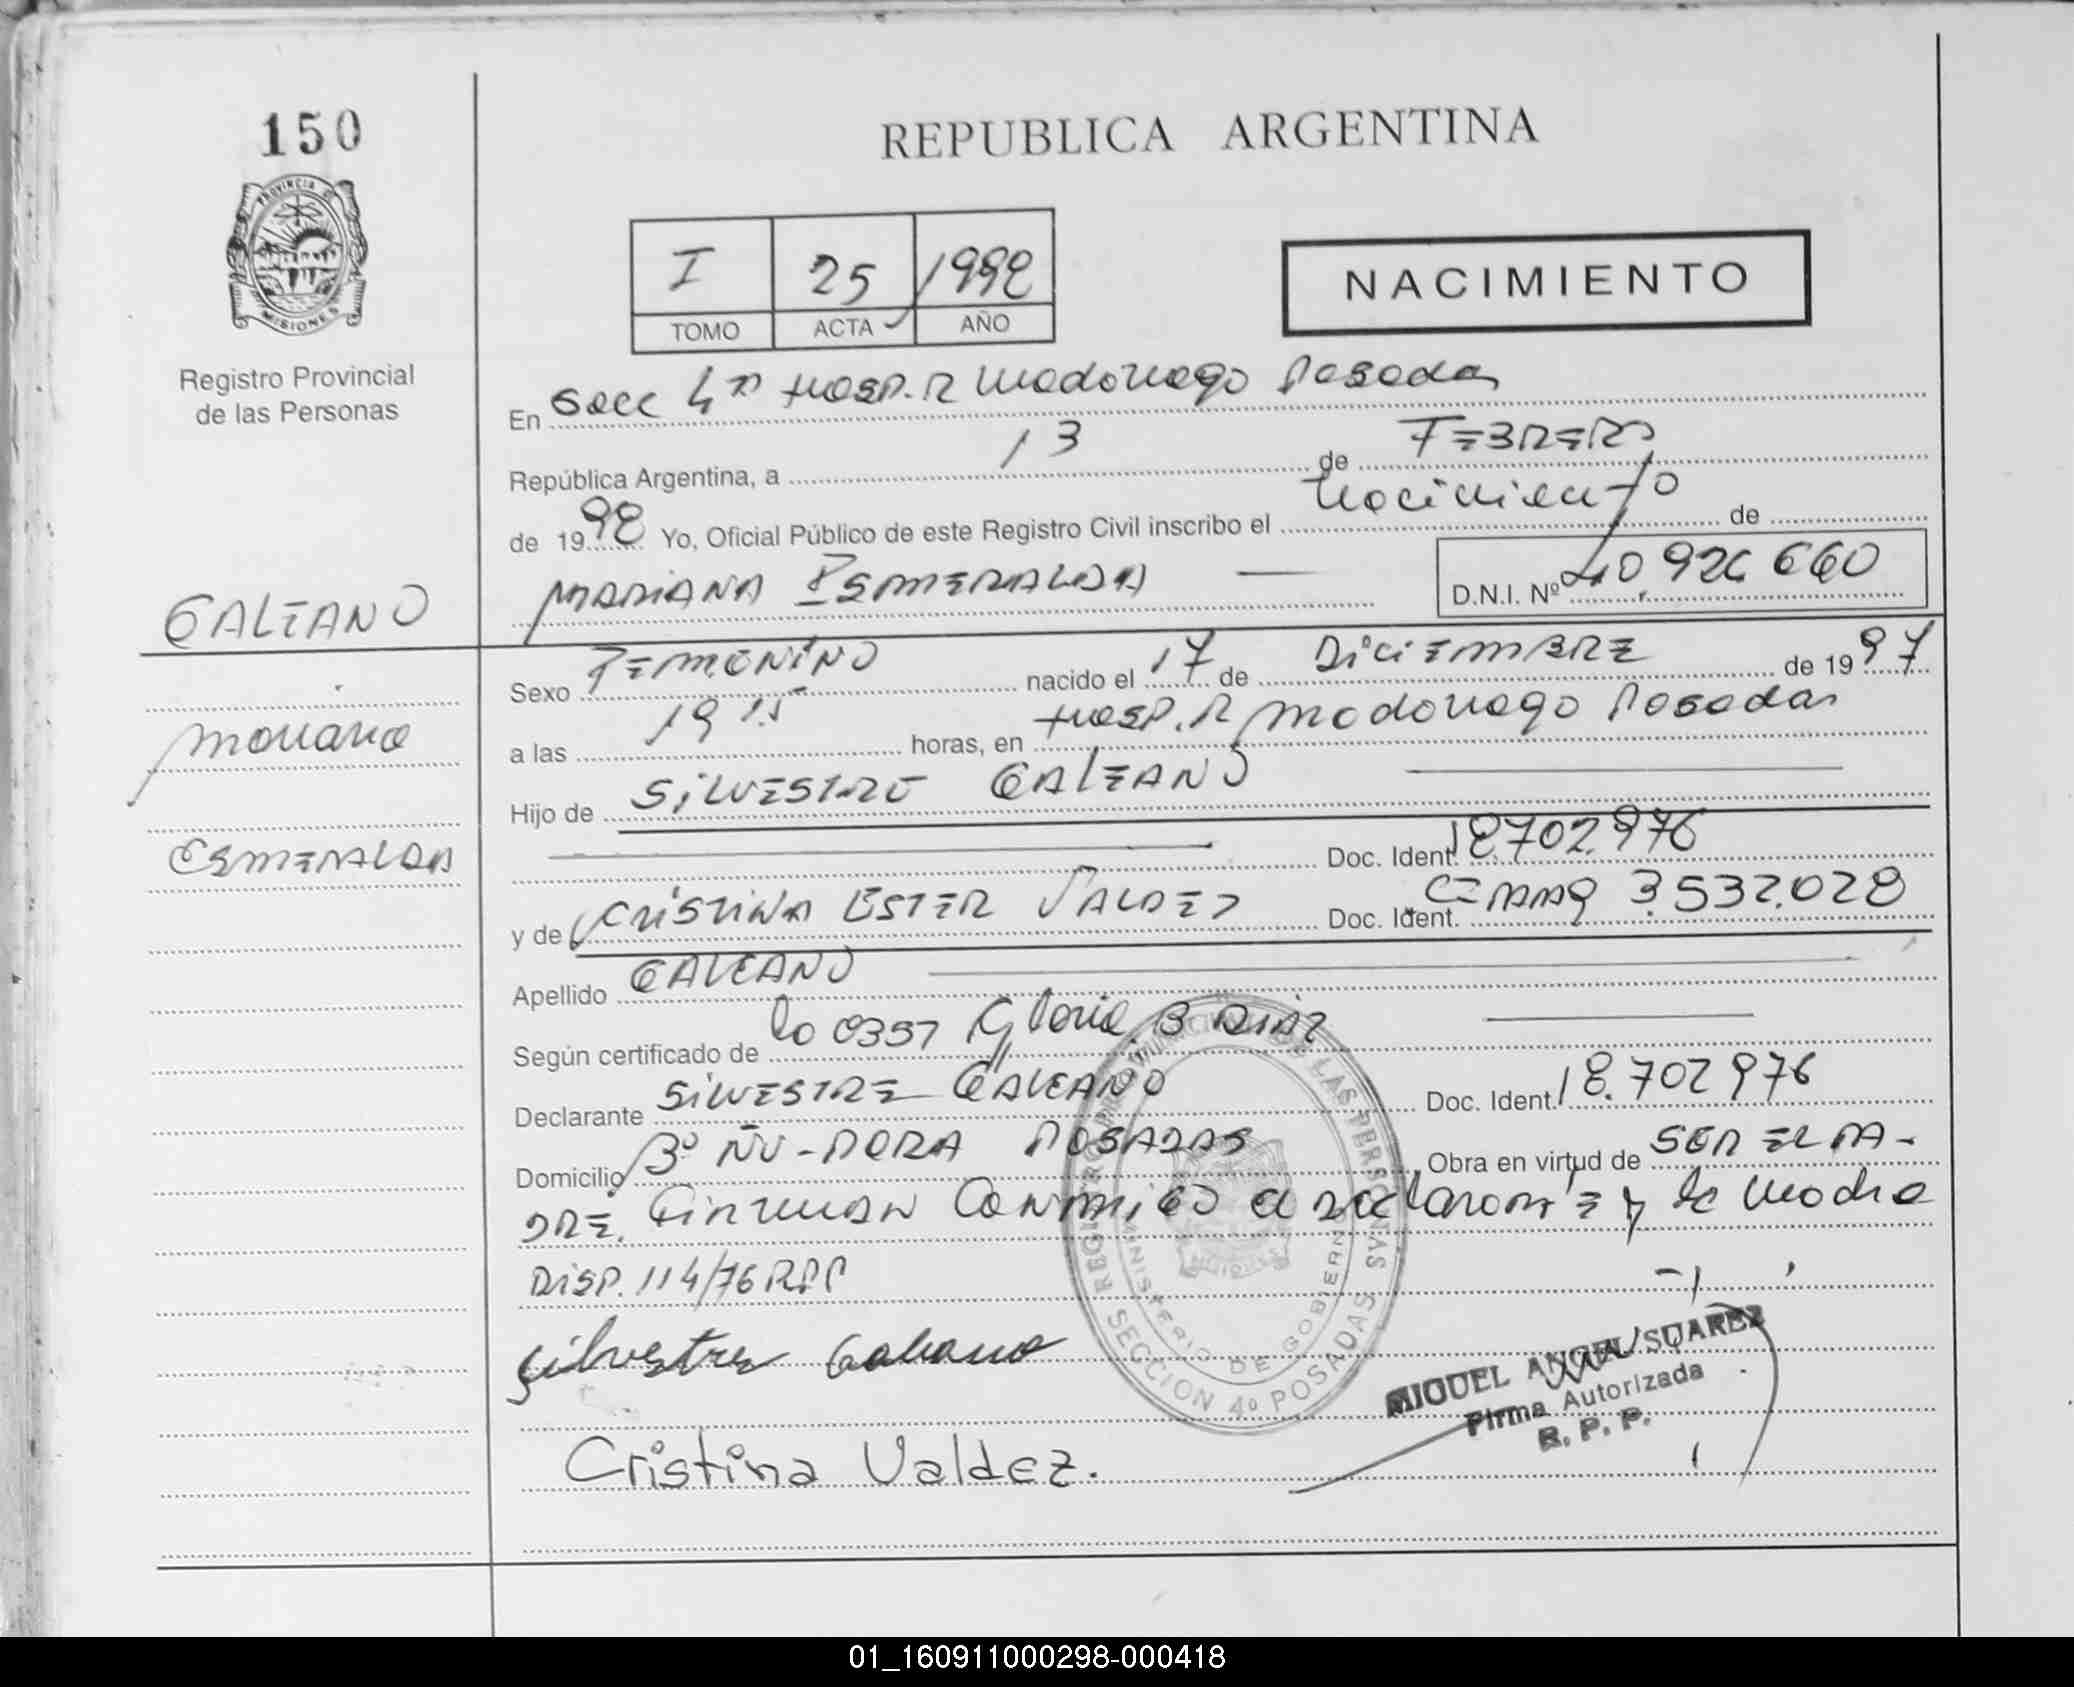 150
REPUBLICA ARGENTINA
PROVINCIA DE
MISIONES
Registro Provincial
de las Personas
I 25 1998
TOMO ACTA AÑO
NACIMIENTO
En Secc 4ta Hosp. R Madariaga Posadas
República Argentina, a 13 de FEBRERO
de 1998 Yo, Oficial Público de este Registro Civil inscribo el Nacimiento de
MARIANA ESMERALDA D.N.I. Nº 40.926 660
GALEANO
Sexo FEMENINO nacido el 17 de DICIEMBRE de 1997
Mariana
a las 19 15 horas, en Hosp. R Madariaga Posadas
Hijo de SILVESTRE GALEANO
ESMERALDA
Doc. Ident. 18702.976
y de CRISTINA ESTER VALDEZ Doc. Ident. 3.532.028
Apellido GALEANO
Según certificado de Gloria B DIAZ
Declarante SILVESTRE GALEANO Doc. Ident. 18.702976
Domicilio Bº ÑU-PORA POSADAS Obra en virtud de SER EL PA-
DRE. FIRMAN CONMIGO el declarante y la Madre
DISP. 114/76 RPP
Silvestre Galeano
Cristina Valdez.
REGISTRO PROVINCIAL DE LAS PERSONAS
MINISTERIO DE GOBIERNO
SECCION 4º POSADAS
MIGUEL ANGEL SUAREZ
Firma Autorizada
R. P. P.
01_160911000298-000418